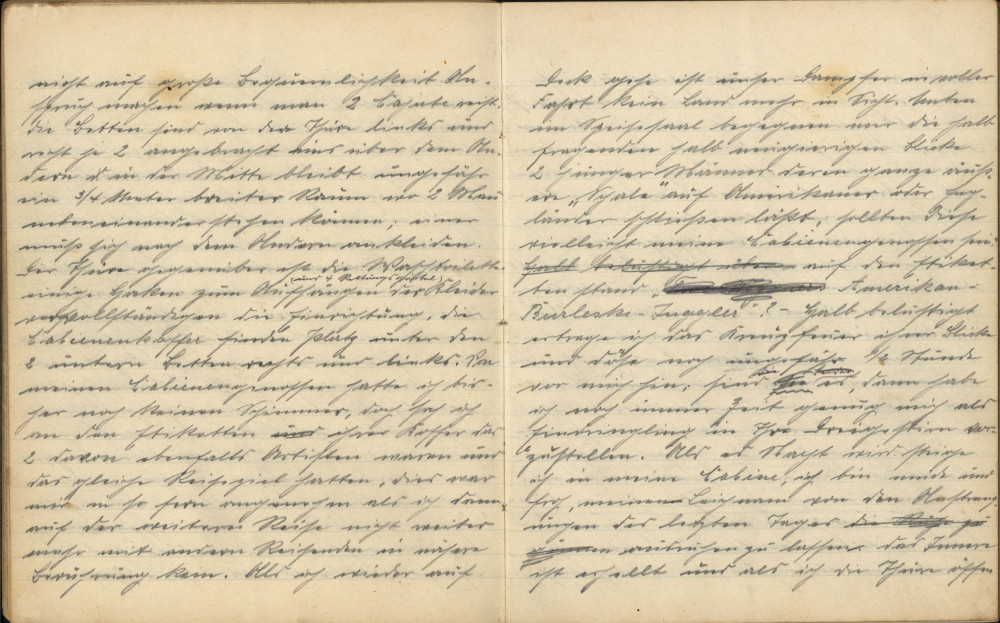 nicht auf große Bequemlichkeit An-
spruch machen wenn man 2 Cajute reist.
die Betten sind von der Thüre links und
recht je 2 angebracht eins über dem An-
dern u in der Mitte bleibt ungefähr
ein 3/4 Meter breiter Raum wo 2 Mann
nebeneinander stehen können, einer
muß sich nach dem Andern ankleiden.
Der Thüre gegenüber ist die Waschtoilette
(und 4 Rettungsgürtel)
einige Haken zum Aufhängen der Kleider
vervollständigen die Einrichtung, die
Cabienenkoffer finden Platz unter den
2 untern Betten rechts und links. Von
meinen Cabienengenossen hatte ich bis-
her noch keinen Schimmer, doch sah ich
an den Etiketten und ihrer Koffer das
2 davon ebenfalls Artisten waren und
das gleiche Reiseziel hatten, dies war
mir in so fern angenehm als ich dann
auf der weiteren Reise nicht weiter
mehr mit andern Reisenden in nähere
Berührung kam. Als ich wieder auf
Deck gehe ist unser Dampfer in voller
Fahrt kein Land mehr in Sicht. Unten
im Speisesaal begegnen mir die halb
fragenden halb neugierigen Blicke
2 junger Männer deren ganze äuß-
ere „Schale" auf Amerikaner oder Eng-
länder schließen läßt, sollten diese
vielleicht meine Cabienengenossen sein.
halb belustigt über auf den Etiket-
ten stand Amerikan-
Burleske-Juggler"? - Halb belustigt
ertrage ich das Kreuzfeuer ihrer Blicke
und döse noch ungefähr 1/2 Stunde
vor mich hin; sind es, dann habe
ich noch immer Zeit genug mich als
Eindringling in Ihr Dreigestirn vor-
zustellen. Als es Nacht wird steige
ich in meine Cabine, ich bin müde und
froh, meinen Leichnam von den Anstreng-
ungen des letzten Tages die Ruhe zu
ausruhen zu lassen. das Innere
ist erhellt und als ich die Thüre öffne